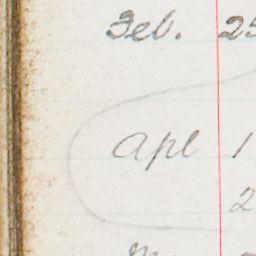 Feb. 25
Apl 1
2